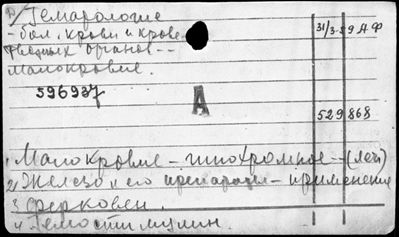 Гемарологие
- бол. крови и крове-
творных органов --
малокровие.
31/3-59 АФ
596937
А
529868
1. Малокровие - гипохромное - (леч)
2. Железо и его препараты - применение
3. Ферковен.
4. Гемостимулин.